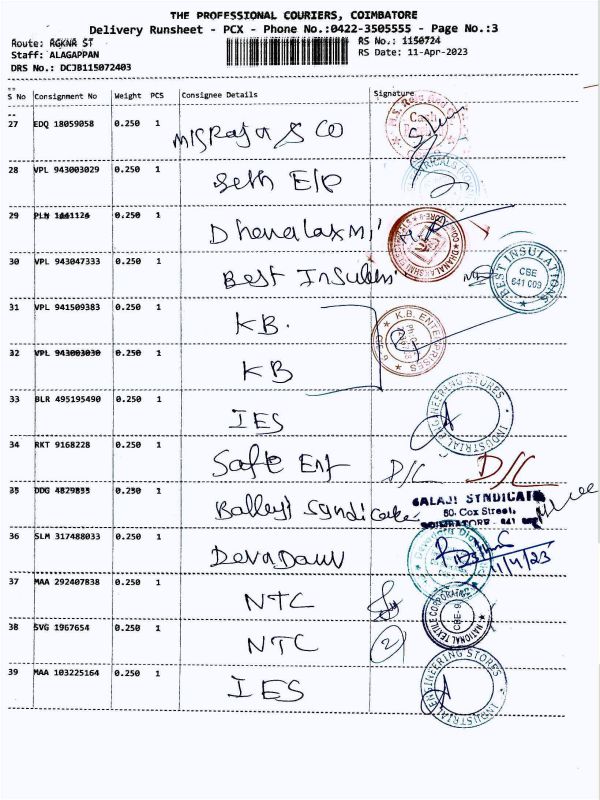 THE PROFESSIONAL COURIERS, COIMBATORE
Delivery Runsheet - PCX - Phone No.:0422-3505555 - Page No.:3
Route: RGKNR ST
RS No.: 1150724
Staff: ALAGAPPAN
RS Date: 11-Apr-2023
DRS No.: DCJB115072403
S No Consignment No Weight PCS Consignee Details Signature
27 EDQ 18059058 0.250 1
28 VPL 943003029 0.250 1 Seth E/P
29 PLN 1441124 0.250 1 Dhanalaxmi
30 VPL 943047333 0.250 1 Best Insulin
BEST INSULATIONS
CBE
641 009
31 VPL 941509383 0.250 1 KB.
K.B. ENTERPRISES
32 VPL 943003030 0.250 1 KB
33 BLR 495195490 0.250 1 IES
INDUSTRIAL ENGINEERING STORES
34 RKT 9168228 0.250 1 Safe Ent D/C D/C
35 DDG 4829835 0.250 1 Balleji Syndicate
BALAJI SYNDICATE
80, Cox Street,
COIMBATORE - 641 001
36 SLM 317488033 0.250 1 Devadaun
11/4/23
37 MAA 292407838 0.250 1 NTC
NATIONAL TEXTILE CORPORATION
38 SVG 1967654 0.250 1 NTC 2
39 MAA 103225164 0.250 1 IES
INDUSTRIAL ENGINEERING STORES